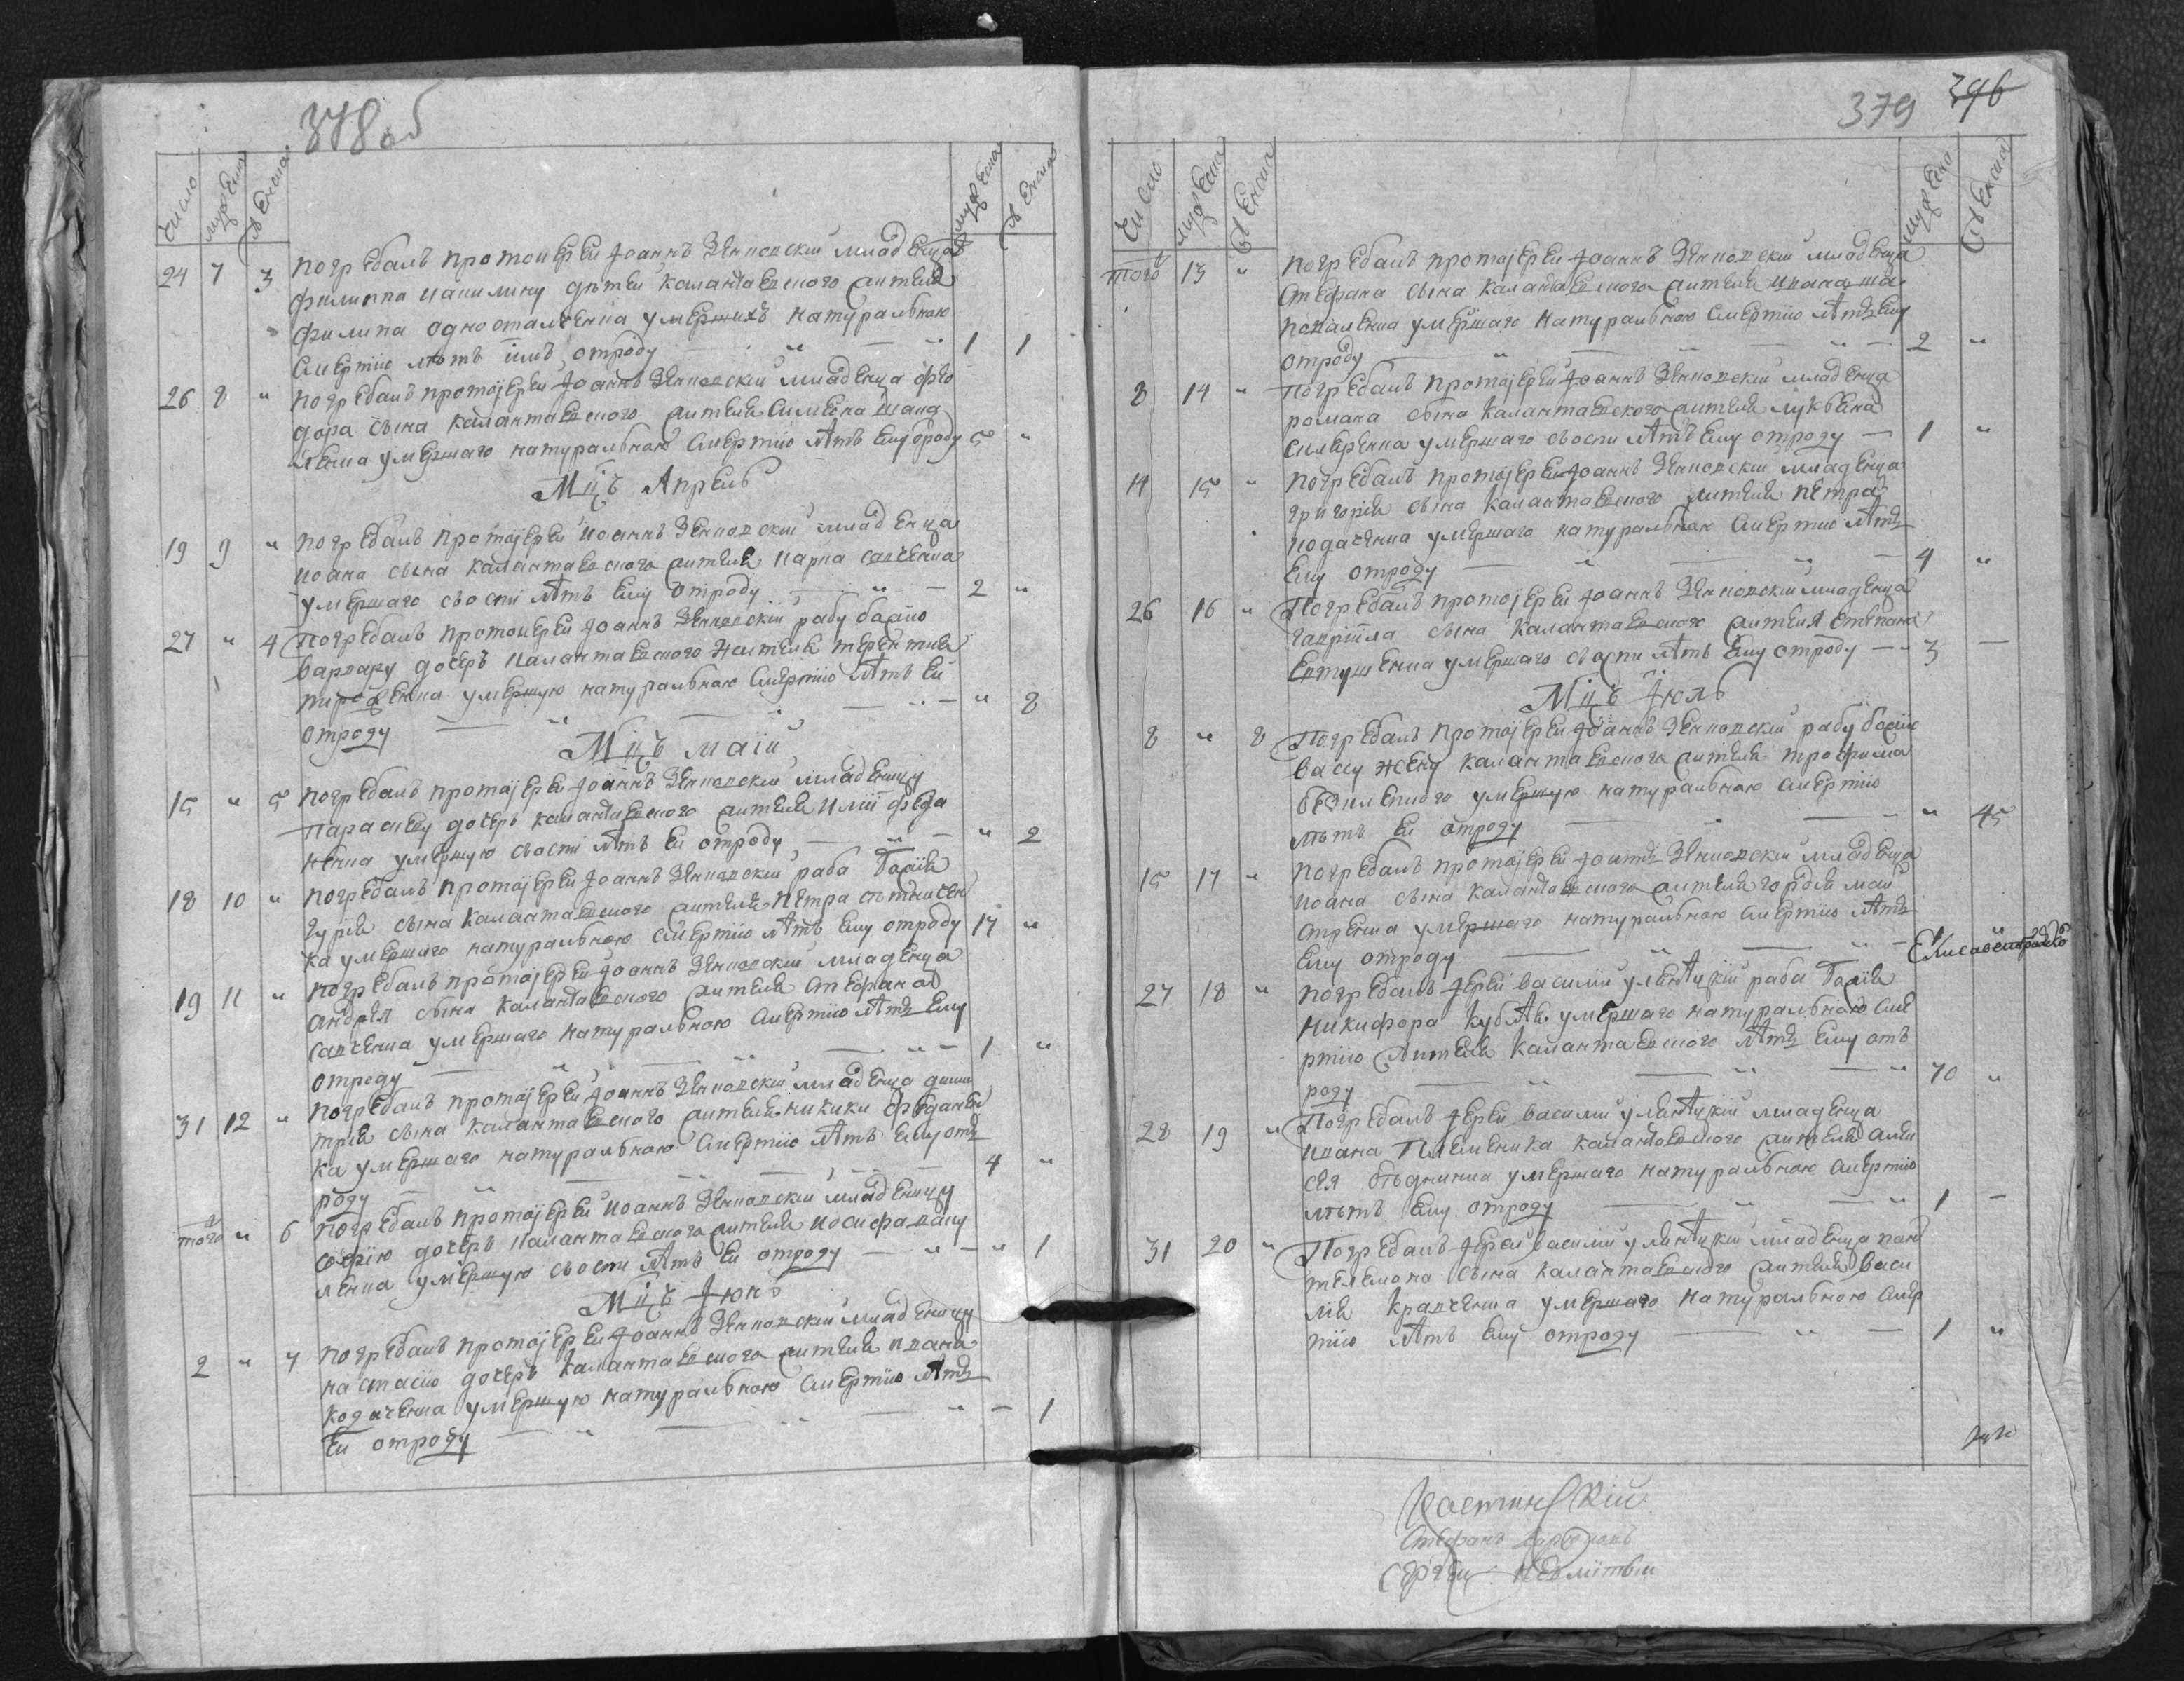 378 об
Число
мужеска
женска
мужеска
женска
24 7 3 погребалъ протоиерей Іоаннъ Зенковскій младенца
филиппа и акилину дѣтей калантаевского жителя
филипа одностал умершихъ натуральною
смертію лѣтъ имъ отроду — " — " 1 1
26 8 " погребалъ протоіерей Іоаннъ Зенковскій младенца фео
дора сына калантаевского жителя симеона
ленка умершаго натуральною смертію лѣтъ ему отроду 5 "
Мцъ Апрель
19 9 " погребалъ протоіерей Иоаннъ Зенковскій младенца
иоана сына калантаевского жителя карпа савченка
умершаго съоспи лѣтъ ему отроду — " — 2 "
27 " 4 Погребалъ протоиерей Іоаннъ Зенковскій рабу божію
варвару дочерь калантаевского жителя терентия
умершую натуральною смертію лѣтъ ей
отроду — " — — " — " 8
Мцъ маій
15 " 5 погребалъ протоіерей Іоаннъ Зенковскій младеницу
параскеву дочерь калантаевского жителя иліи феда
ненка умершую съоспи лѣтъ ей отроду — " — " 2
18 10 " погребалъ протоіерей Іоаннъ Зенковскій раба Божія
гурія сына калантаевского жителя петра сытничен
ка умершаго натуральною смертію лѣтъ ему отроду 17 "
19 11 " погребалъ протоіерей Іоаннъ Зенковскій младенца
андрея сына калантаевского жителя стефана
савченка умершаго натуральною смертію лѣтъ ему
отроду — " — " — " — 1 "
31 12 " погребалъ протоіерей Іоаннъ Зенковскій младенца дими
трія сына калантаевского жителя никики феданен
ка умершаго натуральною смертію лѣтъ ему отъ
роду — " — " — 4 "
того " 6 погребалъ протоіерей Иоаннъ Зенковскій младеницу
софію дочерь калантаевского жителя иосифа
ленка умершую съоспи лѣтъ ей отроду — " — " 1
Мцъ Іюнь
2 " 7 погребалъ протоіерей Іоаннъ Зенковскій младеницу
настасію дочерь калантаевского жителя ивана
кодаченка умершую натуральною смертію лѣтъ
ей отроду — " — " — " — 1
379 396
Число
мужеска
женска
мужеска
женска
того 13 " погребалъ протоіерей Іоаннъ Зенковскій младенца
стефана сына калантаевского жителя ивана ша
поваленка умершаго натуральною смертію лѣтъ ему
отроду — " — " — " — 2 "
8 14 " Погребалъ протоіерей Іоаннъ Зенковскій младенца
романа сына калантаевского жителя лукьяна
умершаго съоспи лѣтъ ему отроду — 1 "
14 15 " погребалъ протоіерей Іоаннъ Зенковскій младенца
григорія сына калантаевского жителя петра
кодаченка умершаго натуральною смертію лѣтъ
ему отроду — " — " — 4 "
26 16 " Погребалъ протоіерей Іоаннъ Зенковскій младенца
гавріила сына калантаевского жителя степана
евтушенка умершаго съоспи лѣтъ ему отроду — " 3 —
Мцъ Іюль
8 " 8 Погребалъ протоіерей Іоаннъ Зенковскій рабу божію
васу жену калантаевского жителя трофима
умершую натуральною смертію
лѣтъ ей отроду — " — " " 45
15 17 " погребалъ протоіерей Зенковскій младенца
иоана сына калантаевского жителя гордея май
стренка умершаго натуральною смертію лѣтъ
ему отроду — " — " —
27 18 " погребалъ іерей василій улянѣцкій раба Божія
никифора умершаго натуральною сме
ртію жителя калантаевского лѣтъ ему отъ
роду — " — " — " 70 "
28 19 " Погребалъ іерей василій улянѣцкій младенца
ивана племеника калантаевского жителя алек
сея умершаго натуральною смертію
лѣтъ ему отроду — " — " 1 —
31 20 " Погребалъ іерей василій улянѣцкій младенца пан
телемона сына калантаевского жителя васи
лія кравченка умершаго натуральною смер
тію лѣтъ ему отроду — " — 1 "
Стефанъ